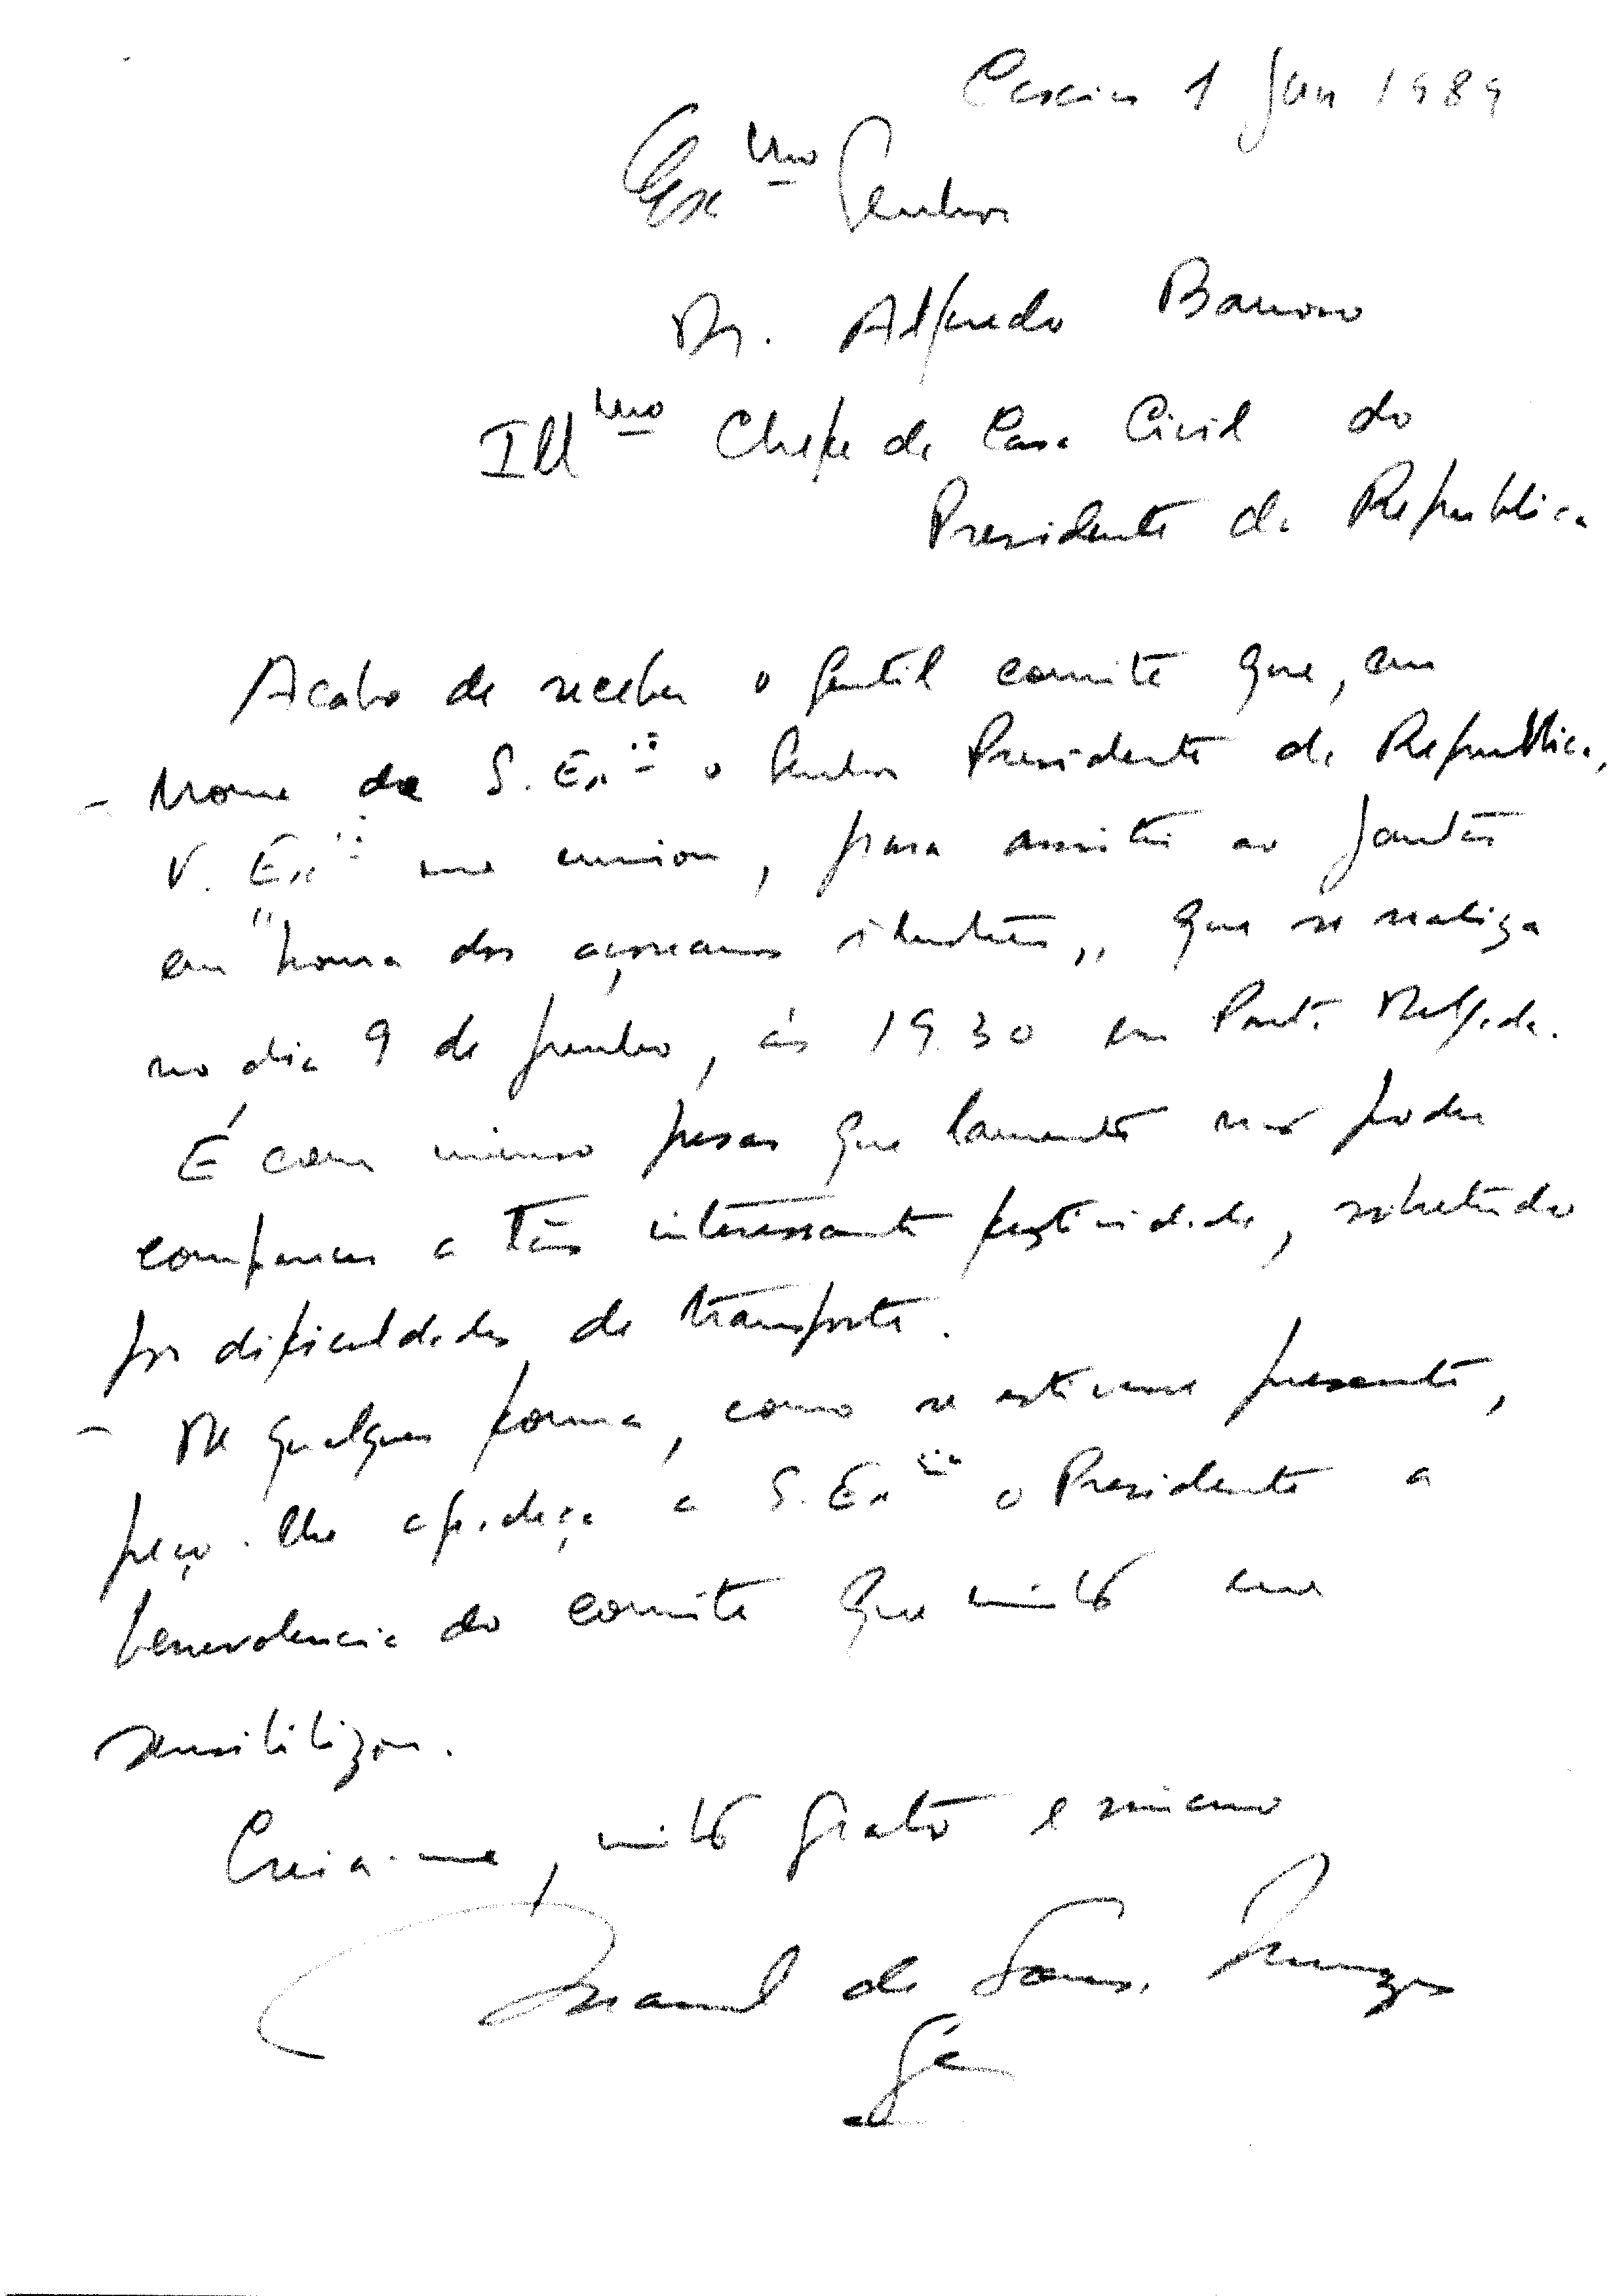 Cascais 1 Jun 1989
Exmo Senhor
Dr. Alfredo Barroso
Illmo Chefe da Casa Civil do
Presidente da Republica
Acabo de receber o gentil convite que, em
- Nome de S. Exia o Senhor Presidente da Republica,
V. Exia me enviou, para assistir ao jantar
em "honra dos açoreanos ilustres", que se realiza
no dia 9 de Junho, às 19.30 em Ponta Delgada.
É com imenso pesar que lamento não poder
comparecer a tão interessante festividade, sobretudo
por dificuldades de transporte.
- De qualquer forma, como se estivesse presente,
peço-lhe agradeça a S. Exia o Presidente a
benevolencia do convite que muito me
sensibilizou.
Creia-me, muito grato e sincero
Manuel de Sousa Menezes